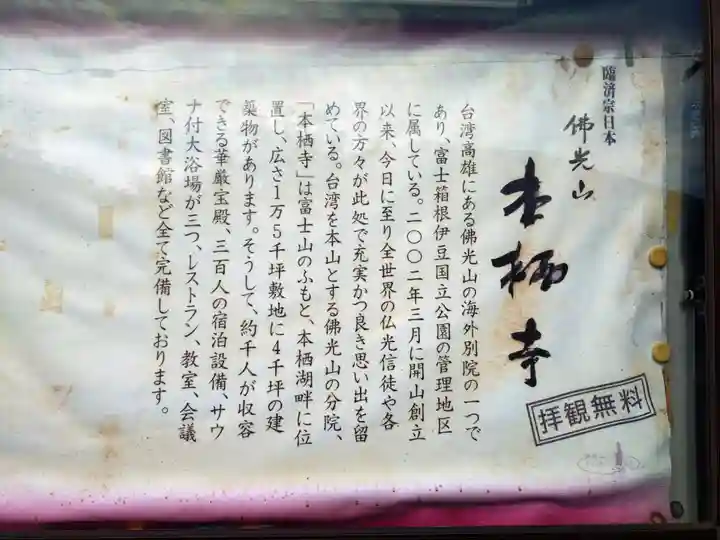 臨済宗日本
佛光山
本栖寺
拝観無料
台湾高雄にある佛光山の海外別院の一つで
あり、富士箱根伊豆国立公園の管理地区
に属している。二〇〇二年三月に開山創立
以来、今日に至り全世界の仏光信徒や各
界の方々が此処で充実かつ良き思い出を留
めている。台湾を本山とする佛光山の分院、
「本栖寺」は富士山のふもと、本栖湖畔に位
置し、広さ1万5千坪敷地に4千坪の建
築物があります。そうして、約千人が収容
できる華厳宝殿、三百人の宿泊設備、サウ
ナ付大浴場が三つ、レストラン、教室、会議
室、図書館など全て完備しております。